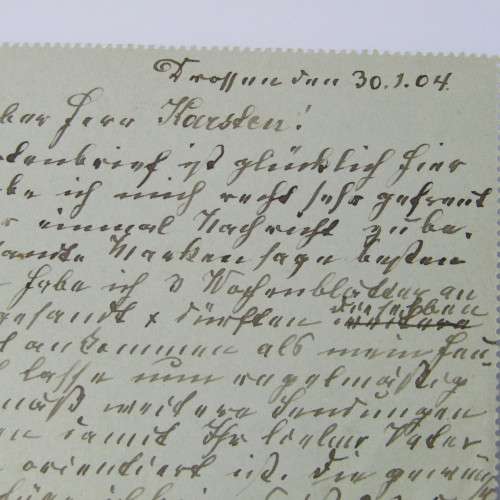 Drossen den 30.1.04.
ber Herr Karsten!
tenbrief ist glücklich hier
be ich mich recht sehr gefreut
r einmal Nachricht zu be-
sandte Marken sage besten
habe ich 3 Wochenblätter an
dieselben
gesandt & dürften weitere
ankommen als mein
lasse nun regelmäßig
mäß weitere Sendungen
en damit Ihr lieber Vater
orientiert ist. Die